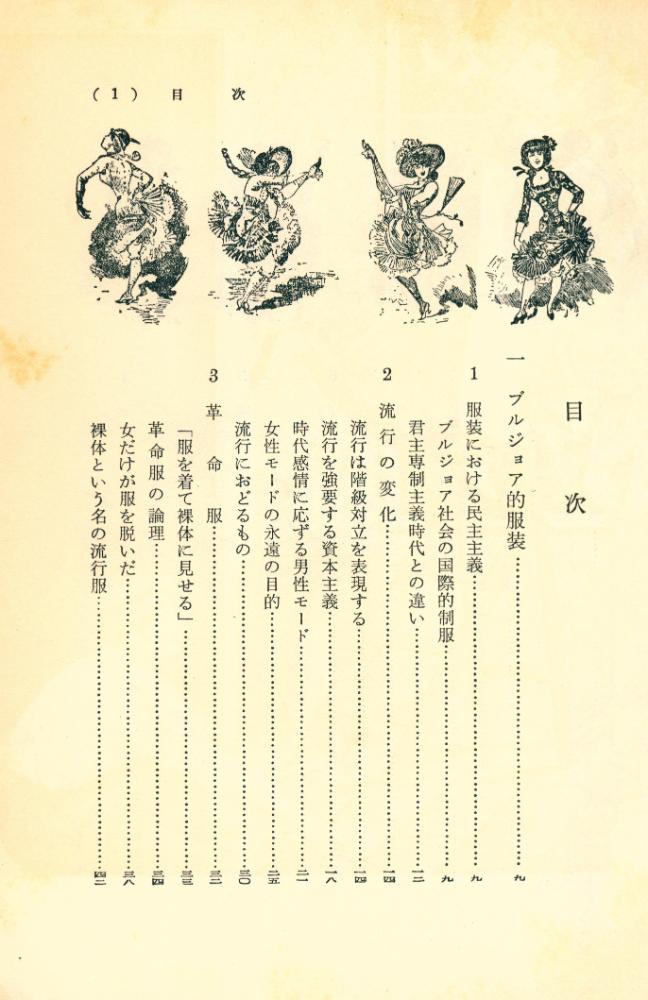 (1) 目次
目次
一 ブルジョア的服装……九
1 服装における民主主義……九
ブルジョア社会の国際的制服……九
君主専制主義時代との違い……一二
2 流行の変化……一四
流行は階級対立を表現する……一四
流行を強要する資本主義……一八
時代感情に応ずる男性モード……二一
女性モードの永遠の目的……二五
流行におどるもの……三〇
3 革命服……三二
「服を着て裸体に見せる」……三三
革命服の論理……三四
女だけが服を脱いだ……三八
裸体という名の流行服……四二